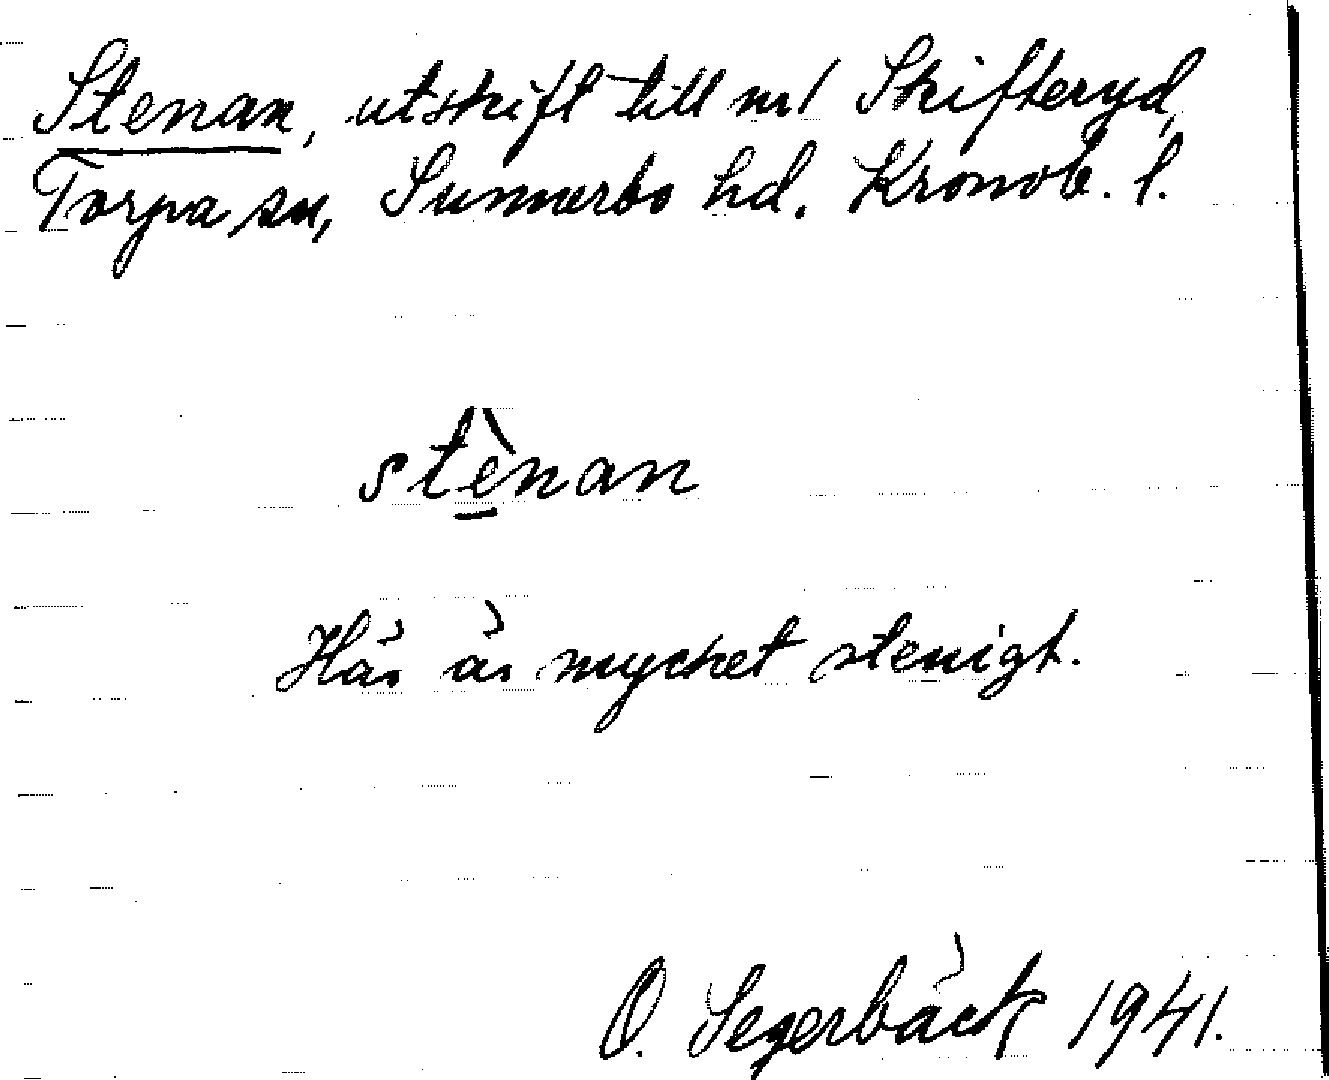 Stenan, utskift till nr 1 Skifteryd,
Torpa sn, Sunnerbo hd. Kronob. l.
stè̲nan
Här är mycket stenigt.
O. Segerbäck 1941.